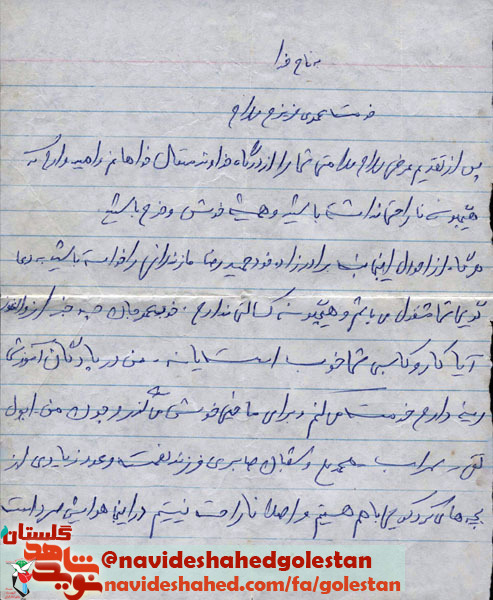 به نام خدا
خدمت عموی عزیزم سلام
پس از تقدیم عرض سلام سلامتی شما را از درگاه خداوند متعال خواهانم و امیدوارم که
هیچگونه ناراحتی نداشته باشید و همیشه خوش و خرم باشید
هرگاه از احوال اینجانب برادرزاده خود حمیدرضا مازندرانی را خواسته باشید به دعا
گویی شما مشغول می باشم و هیچگونه کسالتی ندارم . خوب عموجان چه خبر از
آیا کار و کاسبی شما خوب است یا نه . من در پادگان آموزشی
دارم خدمت می کنم و برای ما خیلی خوش می گذرد چون من
تقی - سهراب - و صابری فرزند نعمت و عده زیادی از
بچه های کردکوی با هم هستیم و اصلا ناراحت نیستم در اینجا هوا خیلی سرد است
گلستان
نوید شاهد
@navideshahedgolestan
navideshahed.com/fa/golestan